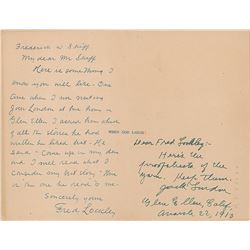 Frederick W Skiff
My dear Mr Skiff
Here is something I
know you will like - One
time when I was visiting
Jack London at his home in
Glen Ellen I asked him which
of all the stories he had
written he liked best - He
said - Come up in my den
and I will read what I
consider my best story - This
is the one he read to me -
Sincerely yours
Fred Lockley
WHEN GOD LAUGHS
Dear Fred Lockley:-
Here's the
proofsheets of the
yarn. Keep them.
Jack London
Glen Ellen, Calif.
August 22, 1913